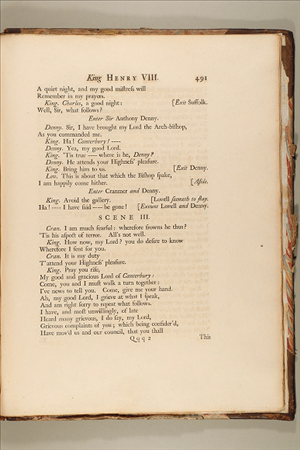 King HENRY VIII. 491
A quiet night, and my good miſtreſs will
Remember in my prayers.
King. Charles, a good night: [Exit Suffolk.
Well, Sir, what follows?
Enter Sir Anthony Denny.
Denny. Sir, I have brought my Lord the Arch-biſhop,
As you commanded me.
King. Ha! Canterbury? —
Denny. Yea, my good Lord.
King. 'Tis true — where is he, Denny?
Denny. He attends your Highneſs' pleaſure.
King. Bring him to us. [Exit Denny.
Lov. This is about that which the Biſhop ſpake,
I am happily come hither. [Aſide.
Enter Cranmer and Denny.
King. Avoid the gallery. [Lovell ſeemeth to ſtay.
Ha! — I have ſaid — be gone! [Exeunt Lovell and Denny.
SCENE III.
Cran. I am much fearful: wherefore frowns he thus?
'Tis his aſpect of terror. All's not well.
King. How now, my Lord? you do deſire to know
Wherefore I ſent for you.
Cran. It is my duty
T'attend your Highneſs' pleaſure.
King. Pray you riſe,
My good and gracious Lord of Canterbury:
Come, you and I muſt walk a turn together:
I've news to tell you. Come, give me your hand.
Ah, my good Lord, I grieve at what I ſpeak,
And am right ſorry to repeat what follows.
I have, and moſt unwillingly, of late
Heard many grievous, I do ſay, my Lord,
Grievous complaints of you; which being conſider'd,
Have mov'd us and our council, that you ſhall
Qqq2 This